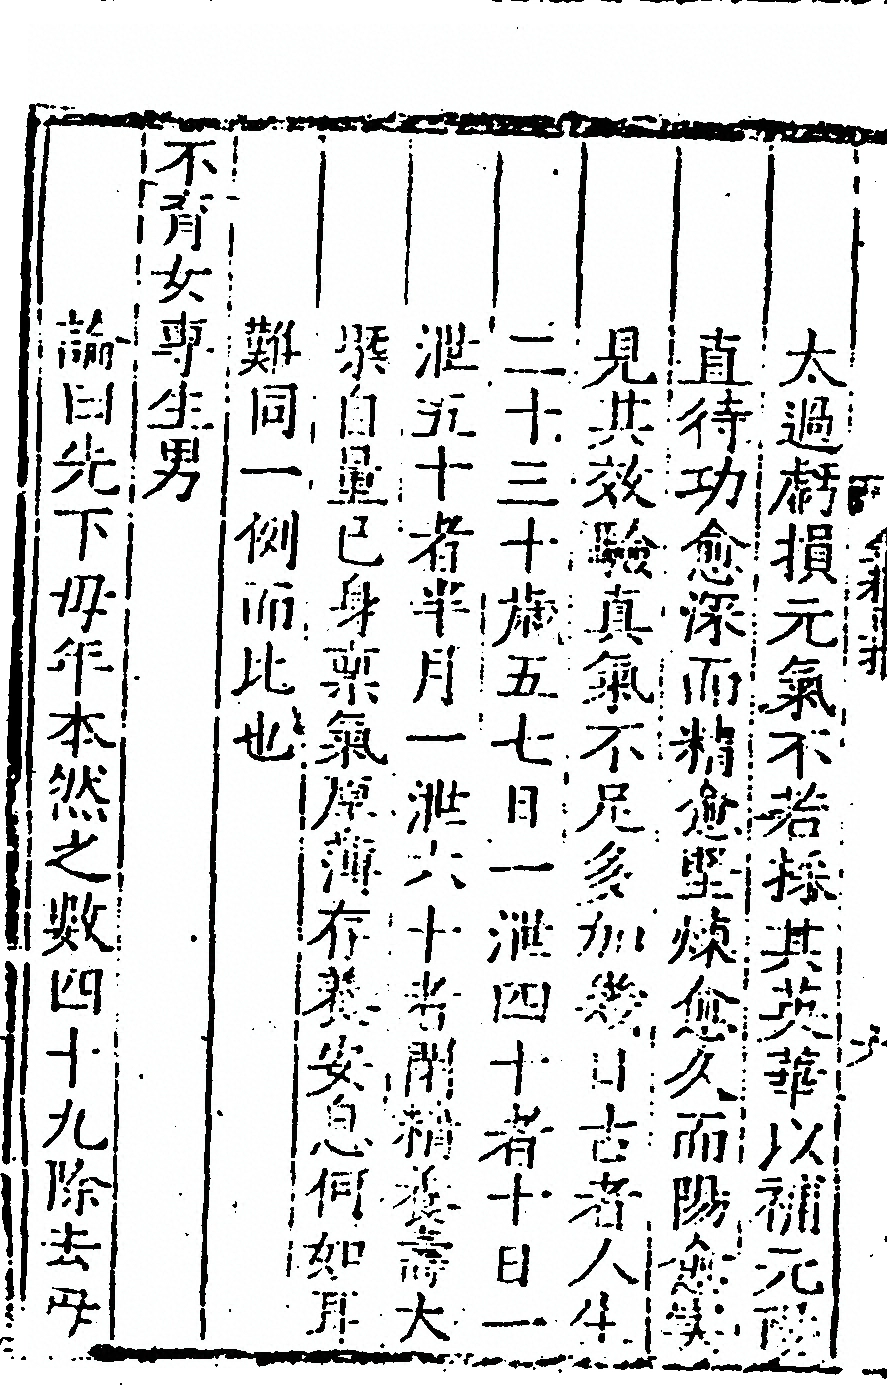 太過虧損元氣不若採其英華以補元陽
直待功愈深而精愈堅煉愈久而陽愈實
見其效驗真氣不足多加幾日古者人生
二十三十歲五七日一泄四十者十日一
泄五十者半月一泄六十者閉精養壽大
槩自量己身稟氣厚薄存養安息何如耳
難同一例而比也
不育女專生男
論曰先下母年本然之數四十九除去母